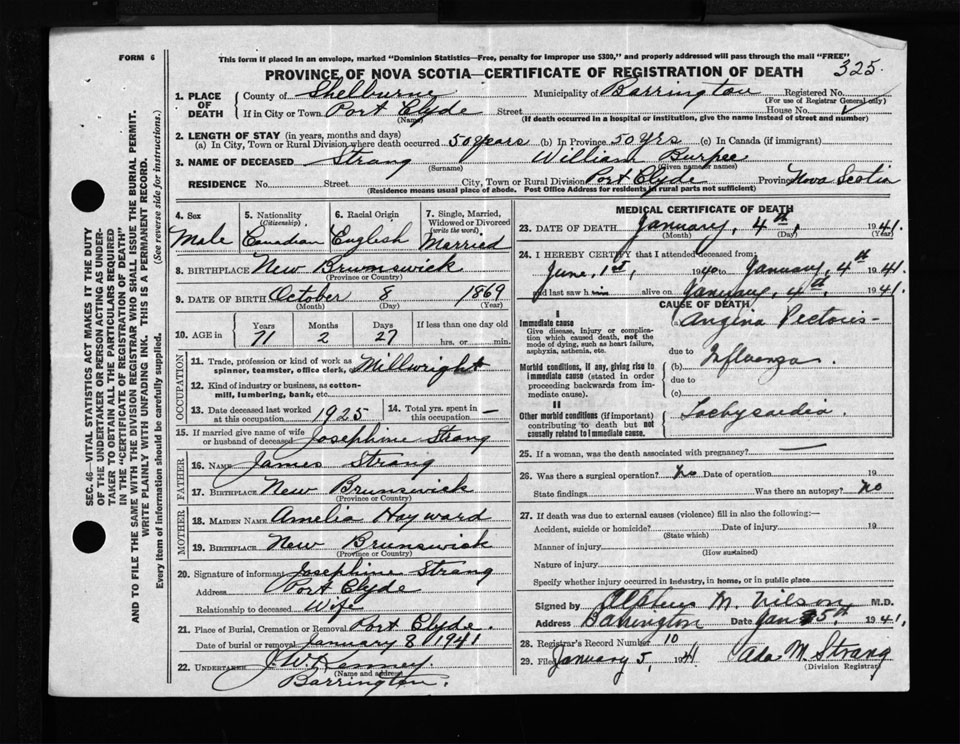 FORM 6
This form if placed in an envelope, marked "Dominion Statistics—Free, penalty for improper use $300," and properly addressed will pass through the mail "FREE"
PROVINCE OF NOVA SCOTIA—CERTIFICATE OF REGISTRATION OF DEATH
325.
1. PLACE OF DEATH
County of Shelburne Municipality of Barrington Registered No.
(For use of Registrar General only)
If in City or Town Port Clyde Street House No.
(Name) (If death occurred in a hospital or institution, give the name instead of street and number)
2. LENGTH OF STAY (in years, months and days)
(a) In City, Town or Rural Division where death occurred 50 years (b) In Province 50 yrs (c) In Canada (if immigrant)
3. NAME OF DECEASED Strang William Burpee
(Surname) (Given name or names)
RESIDENCE No. Street City, Town or Rural Division Port Clyde Province Nova Scotia
(Residence means usual place of abode. Post Office Address for residents in rural parts not sufficient)
4. Sex
Male
5. Nationality
(Citizenship)
Canadian
6. Racial Origin
English
7. Single, Married, Widowed or Divorced
(write the word)
Married
8. BIRTHPLACE New Brunswick
(Province or Country)
9. DATE OF BIRTH October 8 1869
(Month) (Day) (Year)
10. AGE in
Years Months Days If less than one day old
71 2 27 hrs. or min.
OCCUPATION
11. Trade, profession or kind of work as spinner, teamster, office clerk, etc. Millwright
12. Kind of industry or business, as cotton-mill, lumbering, bank, etc.
13. Date deceased last worked at this occupation 1925
14. Total yrs. spent in this occupation —
15. If married give name of wife or husband of deceased Josephine Strang
FATHER
16. NAME James Strang
17. BIRTHPLACE New Brunswick
(Province or Country)
MOTHER
18. MAIDEN NAME Amelia Hayward
19. BIRTHPLACE New Brunswick
(Province or Country)
20. Signature of informant Josephine Strang
Address Port Clyde
Relationship to deceased Wife
21. Place of Burial, Cremation or Removal Port Clyde.
Date of burial or removal January 8 1941
22. UNDERTAKER J. W. Kenney
(Name and address)
Barrington.
MEDICAL CERTIFICATE OF DEATH
23. DATE OF DEATH January, 4th, 1941.
(Month) (Day) (Year)
24. I HEREBY CERTIFY that I attended deceased from:
June, 1st, 1940 to January, 4th 1941.
and last saw him alive on January, 4th. 1941.
CAUSE OF DEATH
I
Immediate cause
Give disease, injury or complication which caused death, not the mode of dying, such as heart failure, asphyxia, asthenia, etc.
(a) Angina Pectoris-
due to
Morbid conditions, if any, giving rise to immediate cause (stated in order proceeding backwards from immediate cause).
(b) Influenza.
due to
(c)
II
Other morbid conditions (if important) contributing to death but not causally related to immediate cause.
Tachycardia.
25. If a woman, was the death associated with pregnancy? —
26. Was there a surgical operation? No Date of operation 19
State findings Was there an autopsy? No
27. If death was due to external causes (violence) fill in also the following:—
Accident, suicide or homicide? Date of injury 19
(State which)
Manner of injury
(How sustained)
Nature of injury
Specify whether injury occurred in industry, in home, or in public place
Signed by Alpheus M. Wilson M.D.
Address Barrington Date Jan 5th 1941.
28. Registrar's Record Number 10
29. Filed January 5, 1941 Ada M. Strang
(Division Registrar)
SEC. 46—VITAL STATISTICS ACT MAKES IT THE DUTY
OF THE UNDERTAKER OR PERSON ACTING AS UNDER-
TAKER TO OBTAIN ALL THE PARTICULARS REQUIRED
IN THE "CERTIFICATE OF REGISTRATION OF DEATH"
AND TO FILE THE SAME WITH THE DIVISION REGISTRAR WHO SHALL ISSUE THE BURIAL PERMIT.
WRITE PLAINLY WITH UNFADING INK. THIS IS A PERMANENT RECORD.
Every item of information should be carefully supplied. (See reverse side for instructions.)